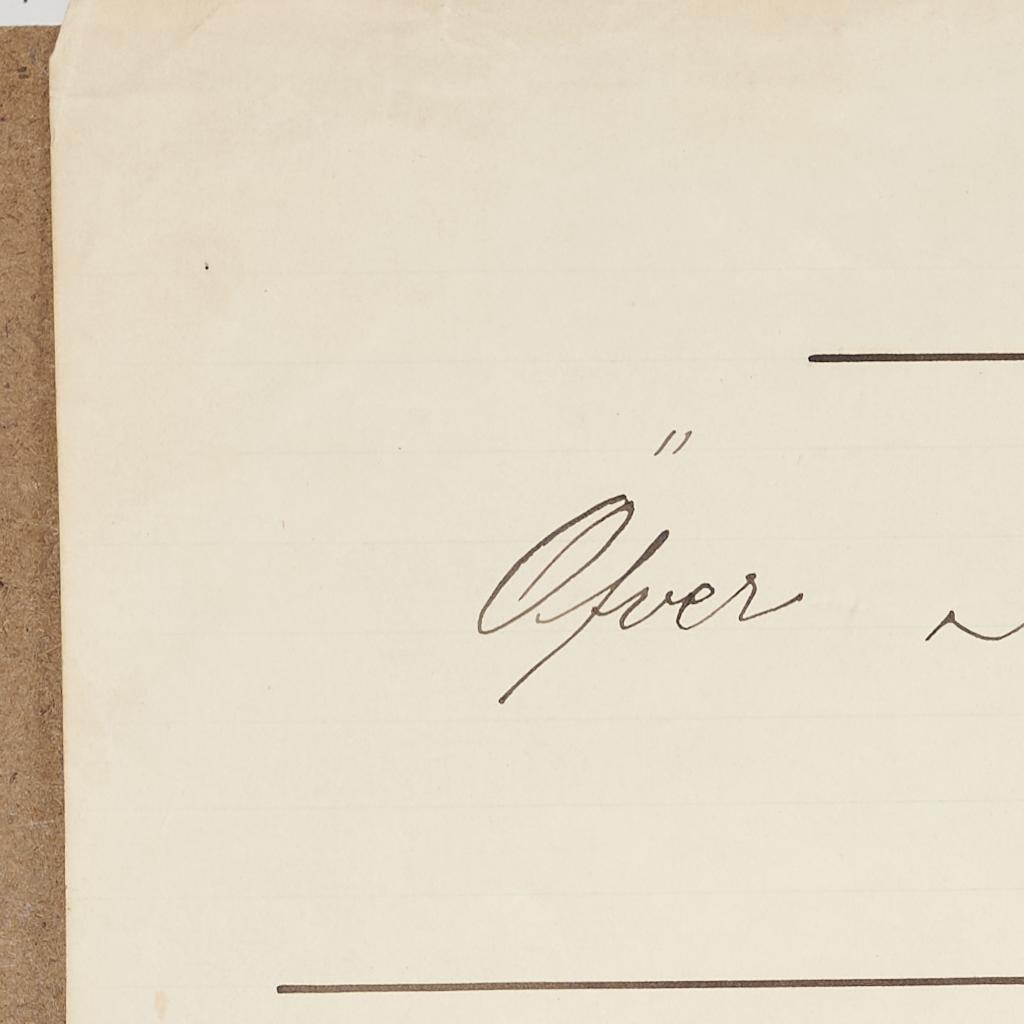 Öfver